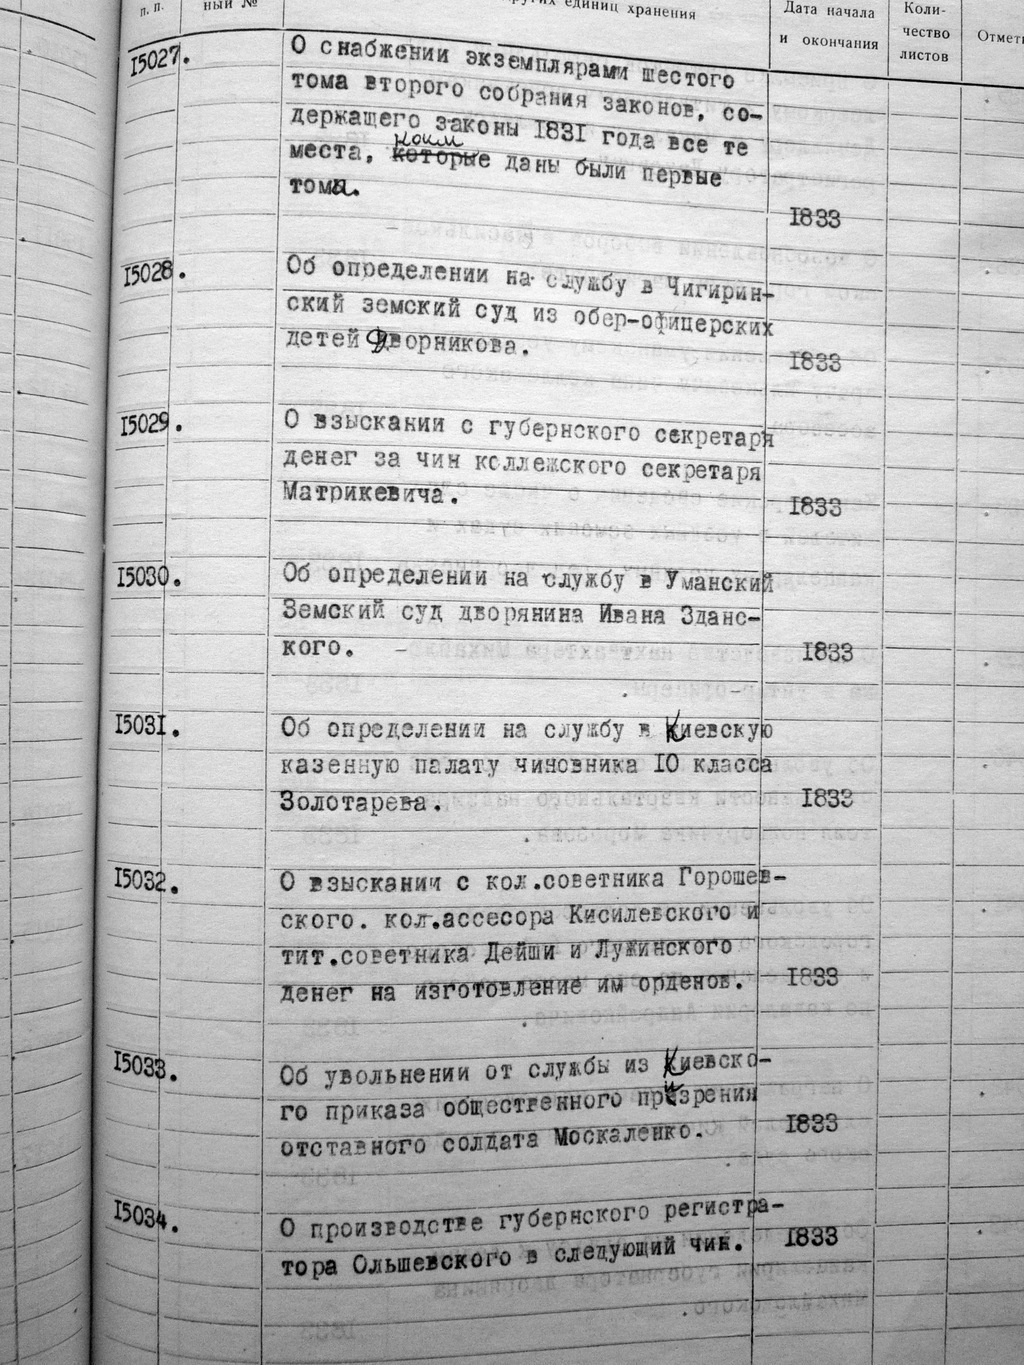 п. п.
ный №
других единиц хранения
Дата начала
и окончания
Коли-
чество
листов
15027.
О снабжении экземплярами шестого
тома второго собрания законов, со-
держащего законы 1831 года все те
коим
места, которые даны были первые
тома.
1833
15028.
Об определении на службу в Чигирин-
ский земский суд из обер-офицерских
детей Дворникова.
1833
15029.
О взыскании с губернского секретаря
денег за чин коллежского секретаря
Матрикевича.
1833
15030.
Об определении на службу в Уманский
Земский суд дворянина Ивана Здано-
кого.
1833
15031.
Об определении на службу в Киевскую
казенную палату чиновника 10 класса
Золотарева.
1833
15032.
О взыскании с кол.советника Горошев-
ского. кол.ассесора Кисилевского и
тит.советника Дейши и Лужинского
денег на изготовление им орденов.
1833
15033.
Об увольнении от службы из Киевско-
го приказа общественного призрения
отставного солдата Москаленко.
1833
15034.
О производстве губернского регистра-
тора Ольшевского в следующий чин.
1833